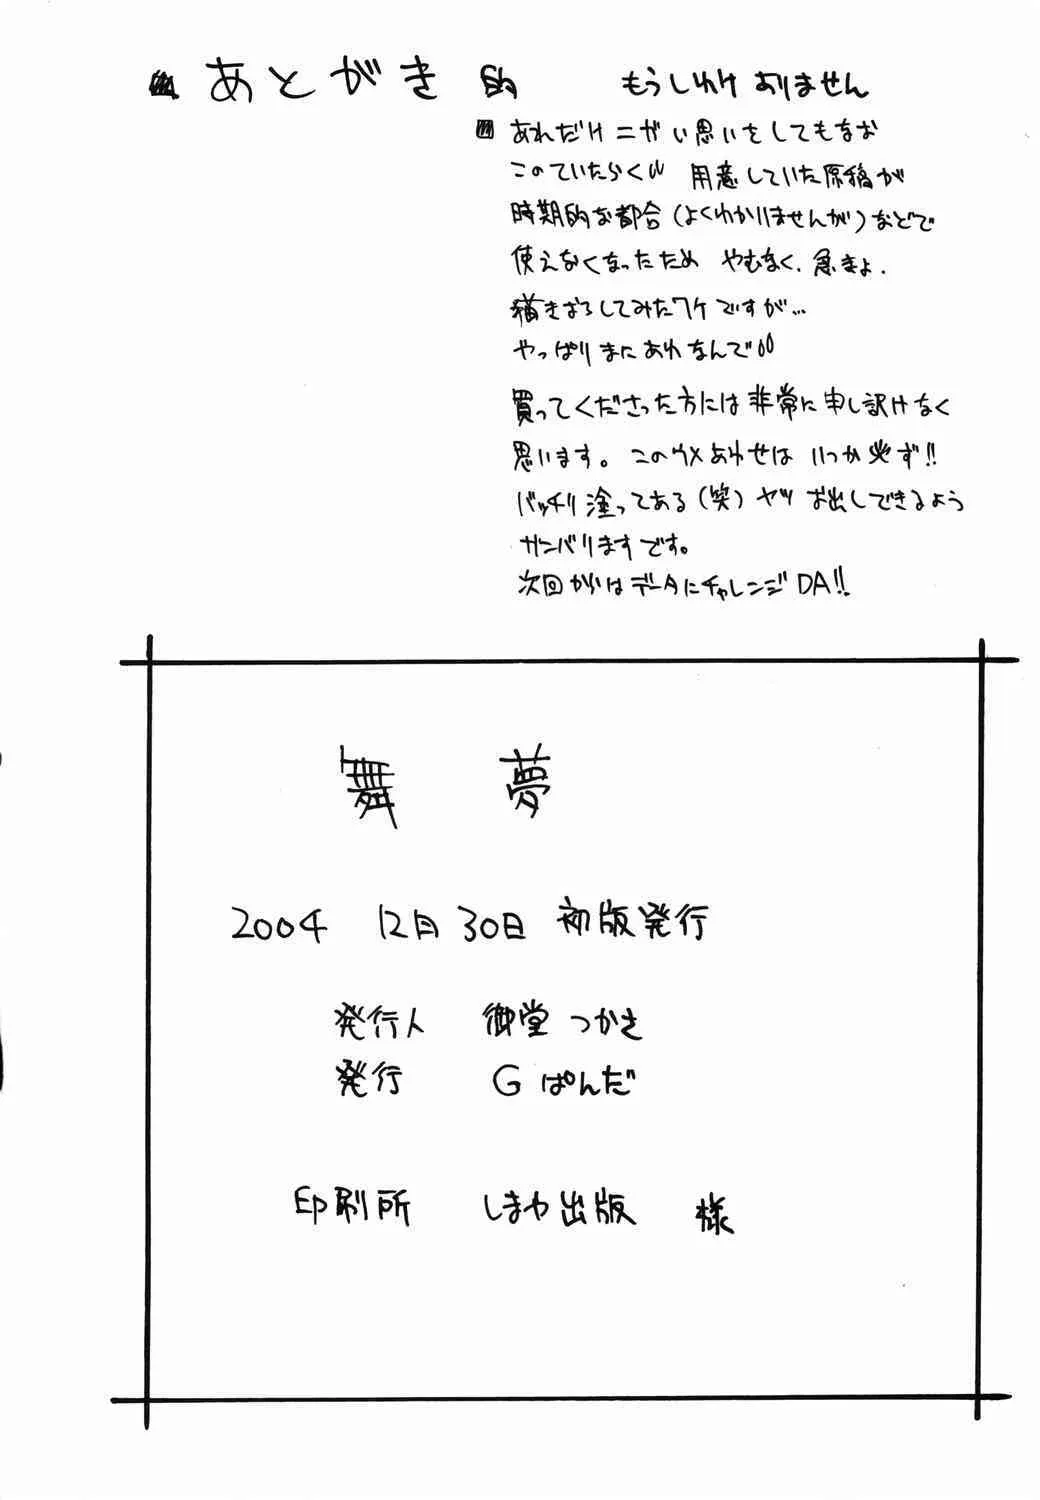 あとがき的 もうしわけありません
あれだけニガい思いをしてもなお
このていたらく 用意していた原稿が
時期的な都合(よくわかりませんが)などで
使えなくなったため やむなく、急きょ、
描きおろしてみたワケですが…
やっぱりまにあわなんで
買ってくださった方には非常に申し訳けなく
思います。このウメあわせはいつか必ず!!
バッチリ塗ってある(笑)ヤツお出しできるよう
ガンバリますです。
次回からはデータにチャレンジDA!!
舞夢
2004 12月30日 初版発行
発行人 御堂つかさ
発行 Gぱんだ
印刷所 しまや出版 様